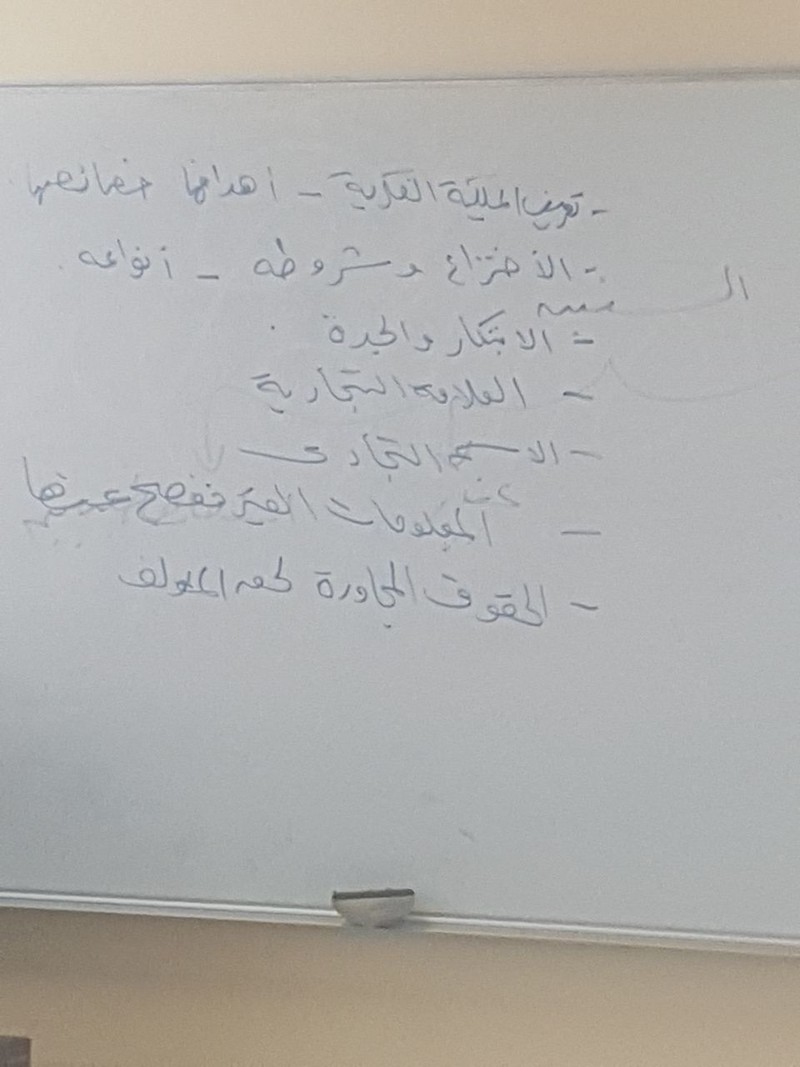 - تعريف الملكية الفكرية - أهدافها خصائصها
- الاختراع وشروطه - أنواعه.
- الابتكار والجدة.
- العلامة التجارية
- الاسم التجاري
- المعلومات الغير مفصح عنها
- الحقوق المجاورة لحق المؤلف